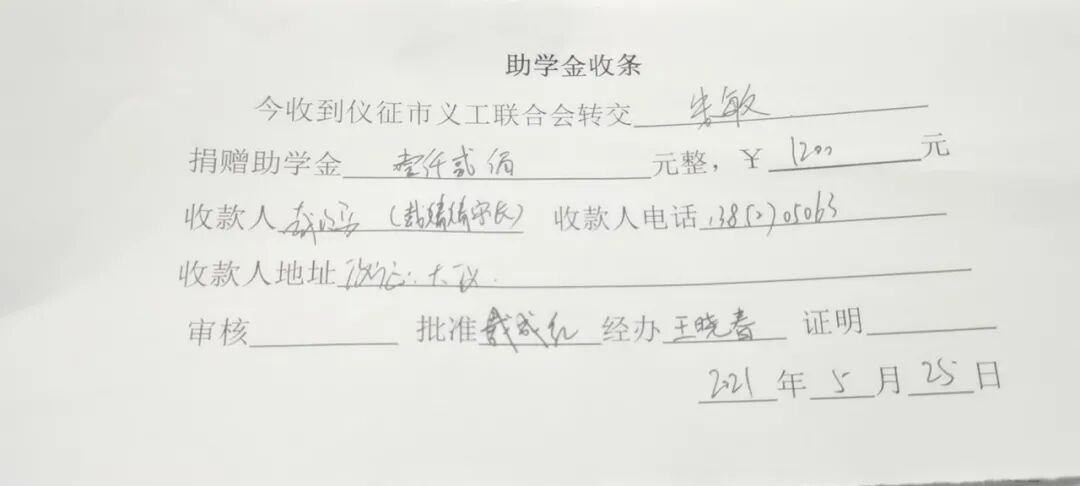 助学金收条
今收到仪征市义工联合会转交 朱敏
捐赠助学金 壹仟贰佰 元整，¥ 1200 元
收款人 （戴绮绮家长） 收款人电话
收款人地址 仪征：大仪
审核 批准 戴成红 经办 王晓春 证明
2021 年 5 月 25 日